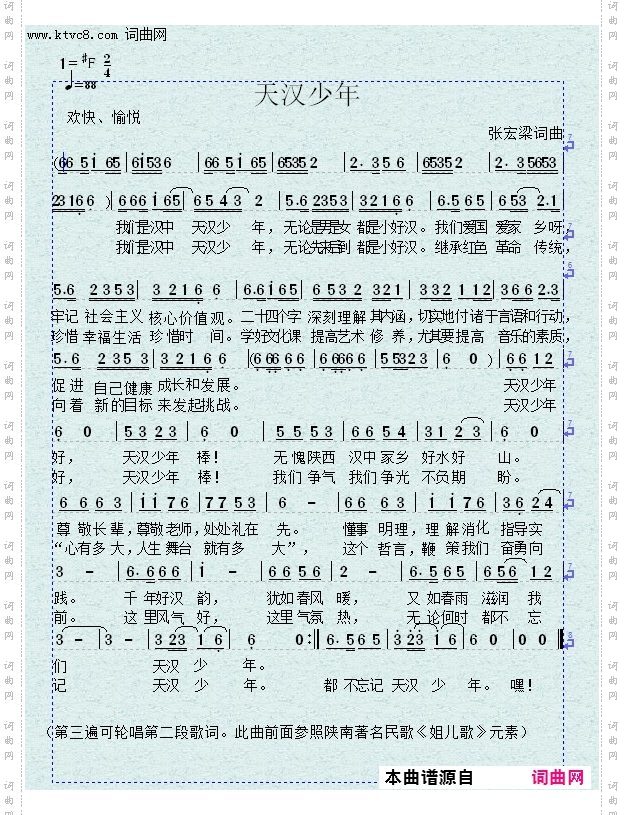 www.ktvc8.com 词曲网
1=#F 2/4
♩=88
天汉少年
欢快、愉悦
张宏梁词曲
(66 5i 65 | 6i536 | 66 5i 65 | 65352 | 2.35 6 | 65352 | 2.35653
23166 ) | 666 i65 | 6543 2 | 5.6 2353 | 32166 | 6.565 | 653 2.1
我们是汉中 天汉少 年，无论是男是女 都是小好汉。我们爱国 爱家 乡呀，
我们是汉中 天汉少 年，无论先来后到 都是小好汉。继承红色 革命 传统，
5.6 2353 | 32166 | 6.6i65 | 6 5653 | 321 11 | 332112 | 366 2.3
牢记 社会主义 核心价值 观。二十四个字 深刻理解 其内涵，切实地付诸于言语和行动，
珍惜 幸福生活 珍惜时 间。学好文化课 提高艺术 修 养，尤其要提高 音乐的素质，
5.6 2353 | 32166 | (66666 | 66666 | 55323 | 6 0 ) | 6612
促进 自己健康 成长和发展。 天汉少年
向着 新的目标 来发起挑战。 天汉少年
6 0 | 5323 | 6 0 | 5553 | 6654 | 3123 | 6 0
好， 天汉少年 棒！ 无 愧陕西 汉中家乡 好水好 山。
好， 天汉少年 棒！ 我们争气 我们争光 不负期 盼。
6663 | ii76 | 7753 | 6 - | 6663 | ii76 | 3624
尊 敬长辈，尊敬老师，处处礼在 先。 懂事 明理，理解消化 指导实
“心有多大，人生舞台 就有多 大”， 这个 哲言，鞭 策我们 奋勇向
3 - | 6.666 | i - | 6656 | 2 - | 6.565 | 656 12
践。 千年好汉 韵， 犹如春风 暖， 又如春雨 滋润 我
前。 这里风气 好， 这里气氛 热， 无论何时 都不 忘
3 - | 3 - | 323 16 | 6 0 :‖ 6.565 | 3.323 16 | 6 0 | 0 0 ‖
们 天汉 少 年。
记 天汉 少 年。 都 不忘记 天汉 少 年。 嘿！
（第三遍可轮唱第二段歌词。此曲前面参照陕南著名民歌《姐儿歌》元素）
本曲谱源自 词曲网